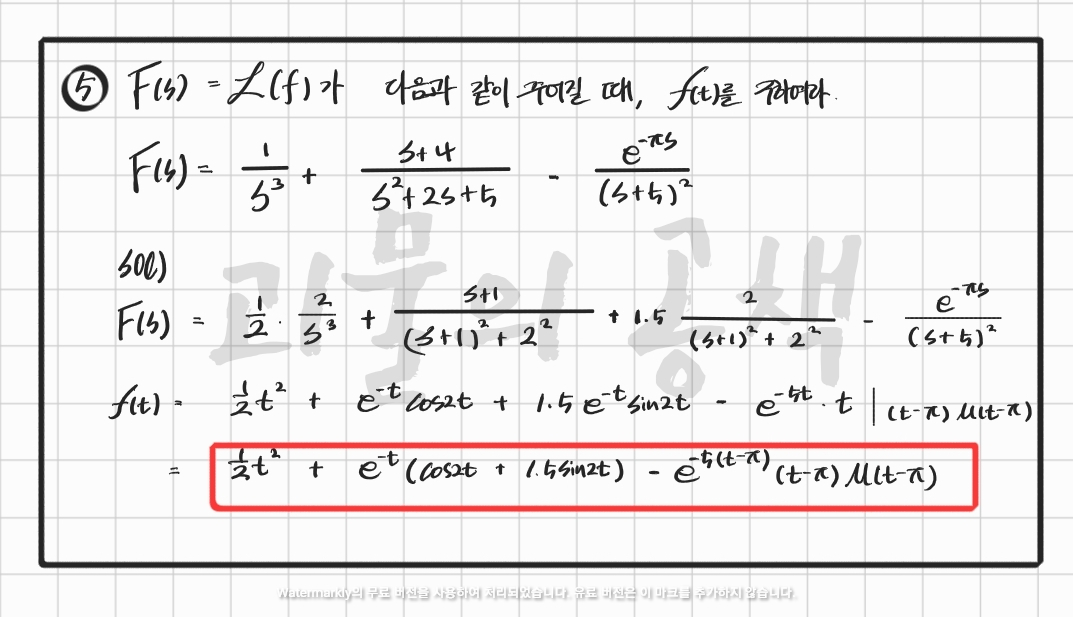 ⑤ F(s) = ℒ(f)가 다음과 같이 주어질 때, f(t)를 구하여라.
F(s) = 1/s³ + (s+4)/(s²+2s+5) - e^(-πs)/(s+5)²
sol)
F(s) = 1/2 · 2/s³ + (s+1)/((s+1)²+2²) + 1.5 2/((s+1)²+2²) - e^(-πs)/(s+5)²
f(t) = 1/2 t² + e^(-t) cos2t + 1.5 e^(-t) sin2t - e^(-5t) · t | (t-π) u(t-π)
= 1/2 t² + e^(-t) (cos2t + 1.5sin2t) - e^(-5(t-π)) (t-π) u(t-π)
괴물의 공책
Watermarkly의 무료 버전을 사용하여 처리되었습니다. 유료 버전은 이 마크를 추가하지 않습니다.